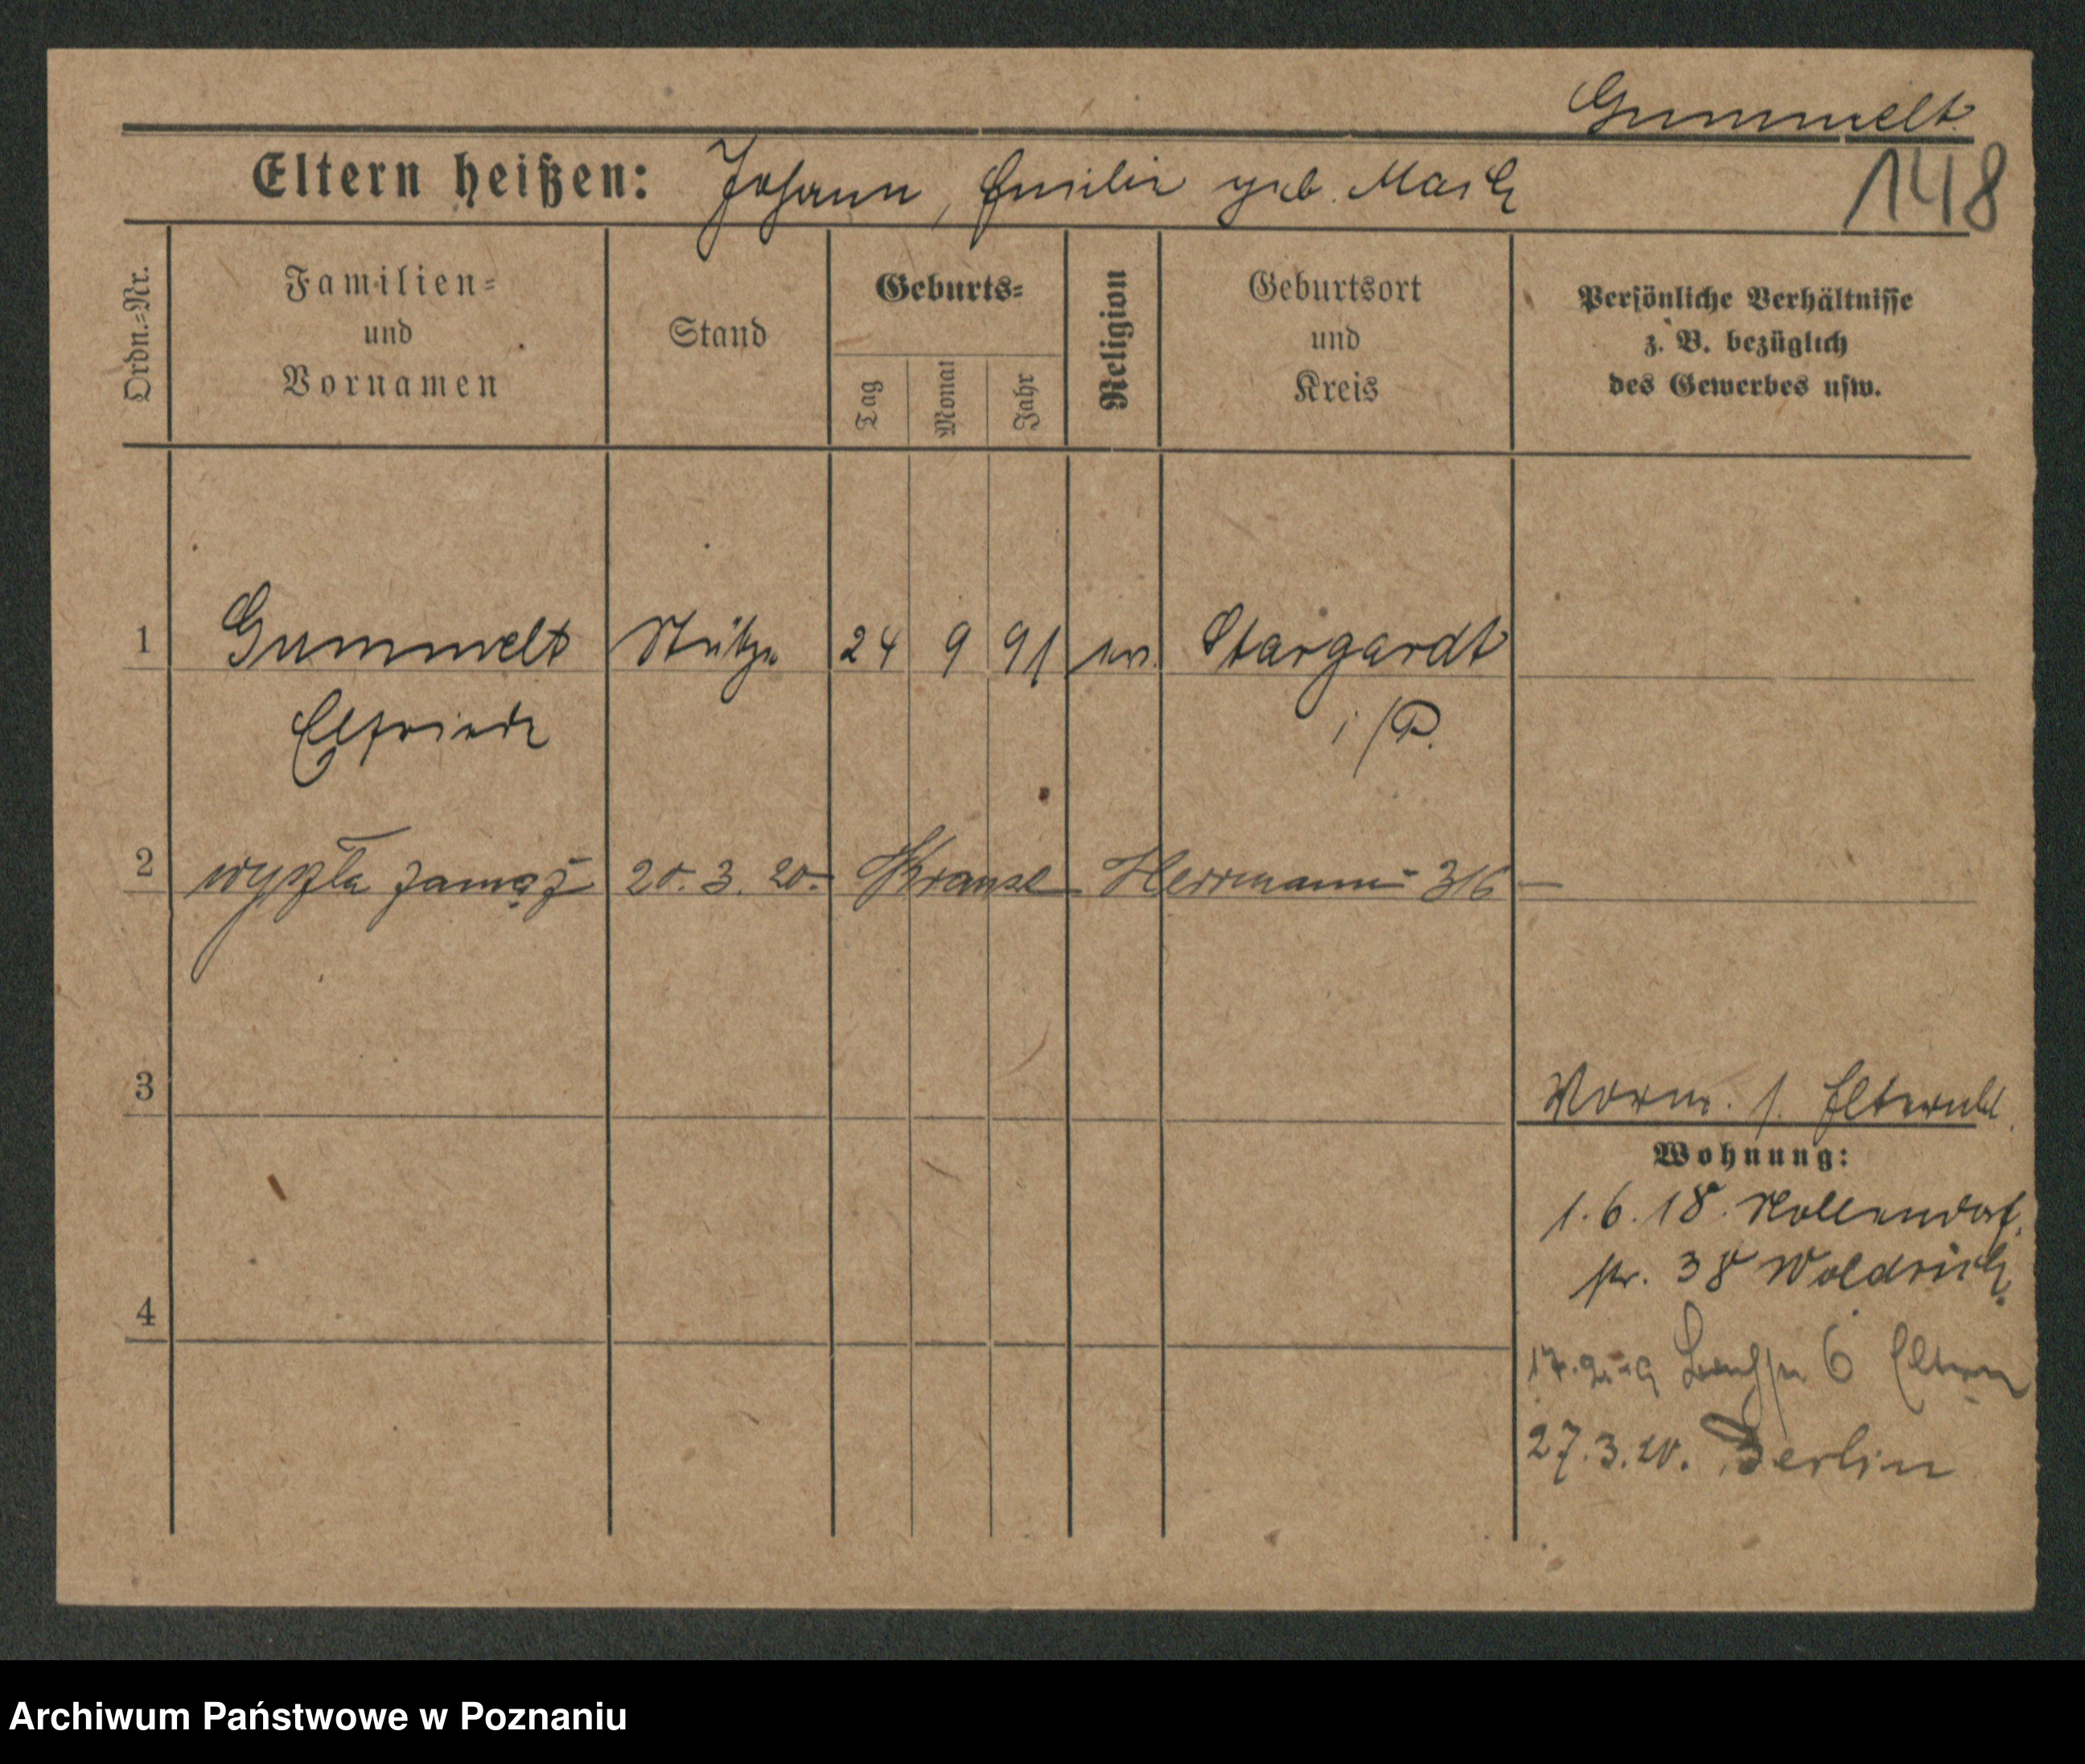 Gummelt
Eltern heißen: Johann, Emilie geb. Mach
148
Ordn.=Nr.
Familien=
und
Vornamen
Stand
Geburts=
Tag
Monat
Jahr
Religion
Geburtsort
und
Kreis
Persönliche Verhältnisse
z. B. bezüglich
des Gewerbes usw.
1 Gummelt Stütze 24 9 91 ev. Stargardt
Elfriede i/P.
2 wyszła zamąż 20. 3. 20. Krause Herrmann 316
3
Vorm. s. Elternbl.
Wohnung:
1. 6. 18. Nollendorf.
str. 38 Woldrich
4
6 Eltern
27. 3. 20. Berlin
Archiwum Państwowe w Poznaniu